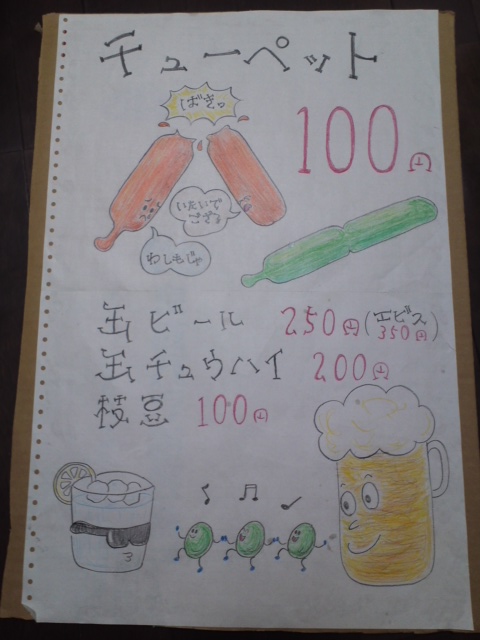 チューペット
ばきっ
100円
いたいで
ござる
わしもじゃ
缶ビール 250円(エビス
350円)
缶チュウハイ 200円
枝豆 100円